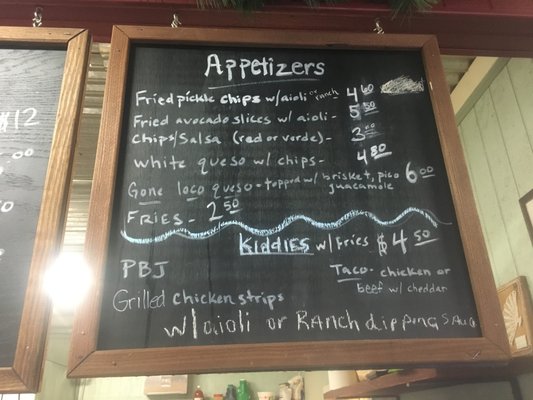 Appetizers
Fried pickle chips w/aioli or ranch 4 60
Fried avocado slices w/ aioli - 5 50
Chips/Salsa (red or verde) - 3 00
White queso w/ chips - 4 80
Gone loco queso - topped w/ brisket, pico 6 00
guacamole
FRIES - 2 50
KIDDIES w/ Fries $4 50
PBJ
Taco - chicken or
beef w/ cheddar
Grilled chicken strips
w/aioli or RANch dipping
12